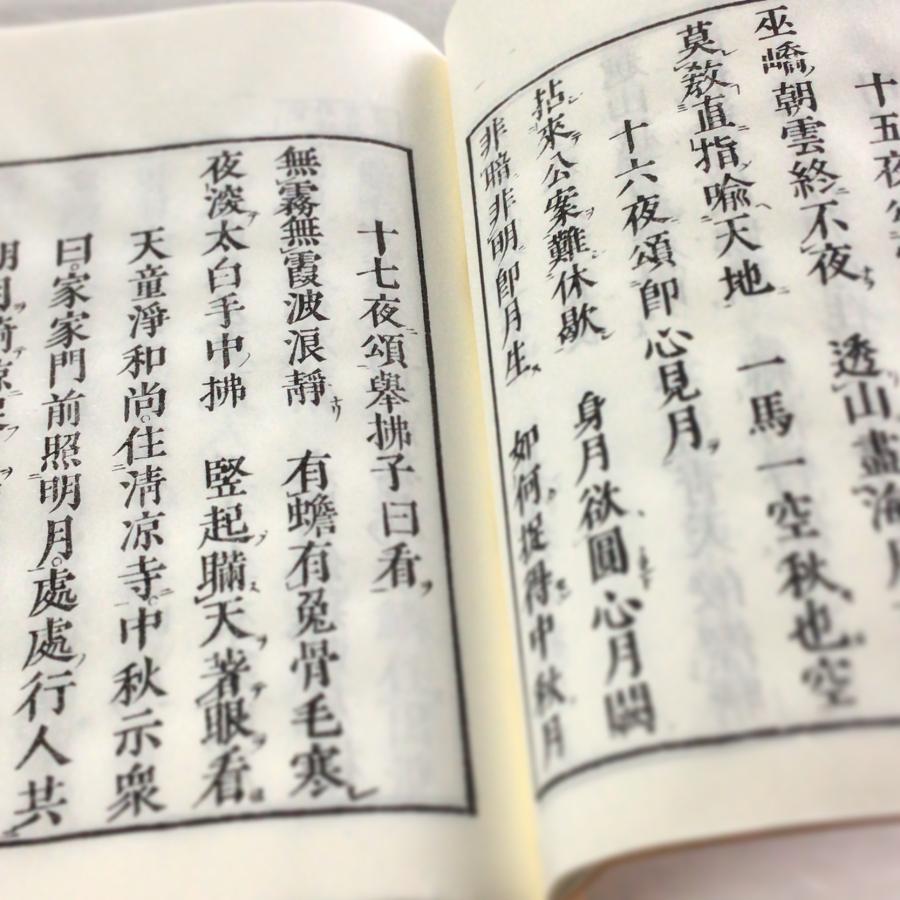 十五夜頌
巫嶠朝雲終不夜 透山盡海
莫教直指喩天地 一馬一空秋也空
十六夜頌即心見月
拈來公案難休歇 身月欲圓心月閙
非暗非明即月生 如何捉得中秋月
十七夜頌擧拂子曰看
無霧無霞波浪靜 有蟾有兔骨毛寒
夜淡太白手中拂 竪起瞞天著眼看
天童淨和尚住淸凉寺中秋示衆
曰家家門前照明月處處行人共
明月